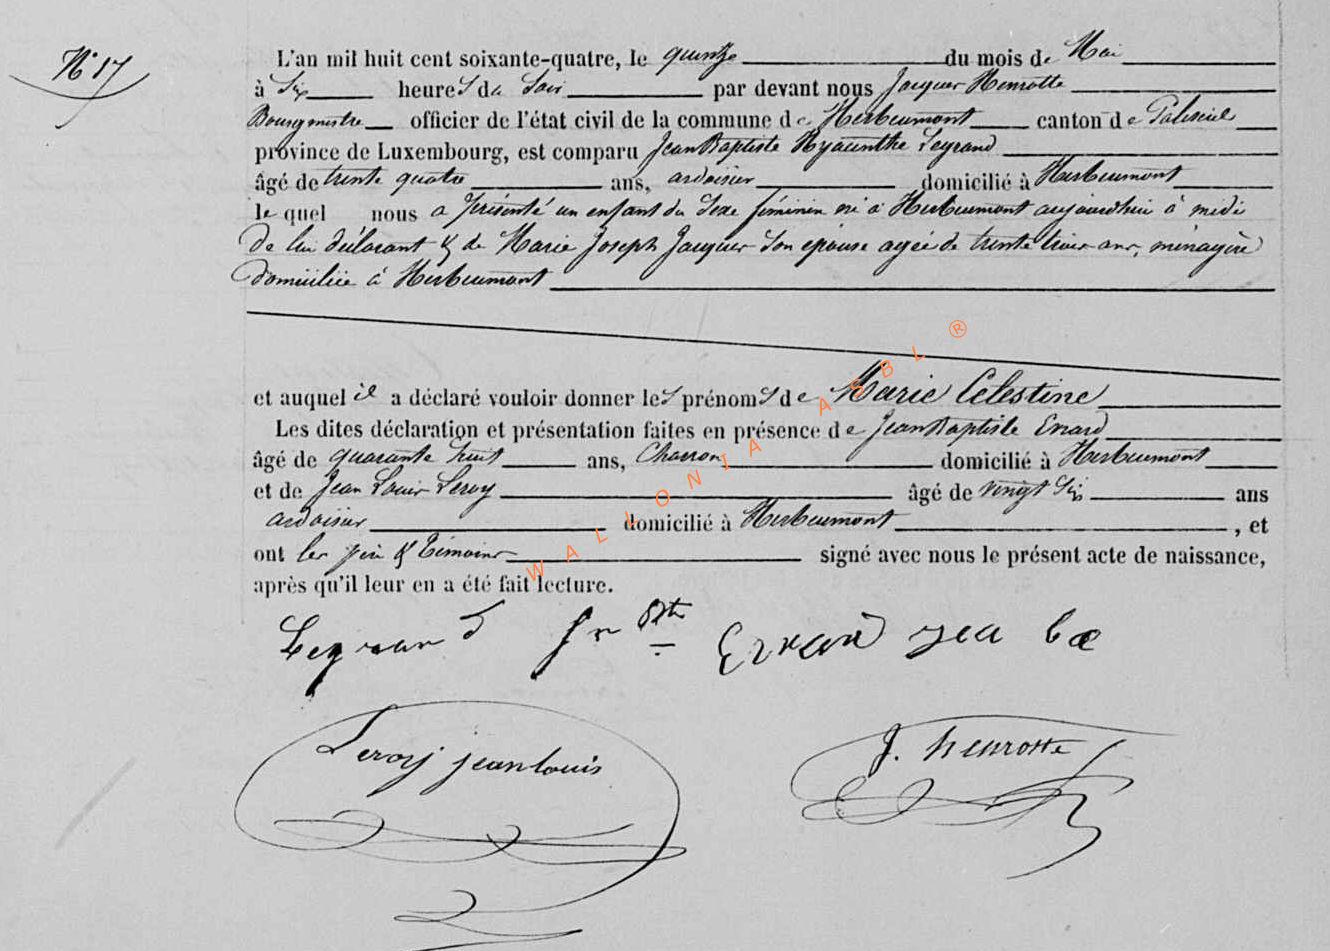 N° 17
L'an mil huit cent soixante-quatre, le quinze du mois de Mai
à Six heures du Soir par devant nous Jacques Henrotte
Bourgmestre officier de l'état civil de la commune de Herbeumont canton de Paliseul
province de Luxembourg, est comparu Jean Baptiste Hyacinthe Legrand
âgé de trente quatre ans, ardoisier domicilié à Herbeumont
le quel nous a présenté un enfant du Sexe féminin né à Herbeumont aujourdhui à midi
de lui déclarant & de Marie Joseph Jacques Son épouse agée de trente trois ans, ménagère
domiciliée à Herbeumont
et auquel il a déclaré vouloir donner les prénoms de Marie Celestine
Les dites déclaration et présentation faites en présence de Jean Baptiste Evrard
âgé de quarante huit ans, Charron domicilié à Herbeumont
et de Jean Louis Leroy âgé de vingt Six ans
ardoisier domicilié à Herbeumont, et
ont les père & témoins signé avec nous le présent acte de naissance,
après qu'il leur en a été fait lecture.
Legrand Jn Bte Evrard jea ba
Leroy jean louis J. henrotte
WALLONIA ASBL ®